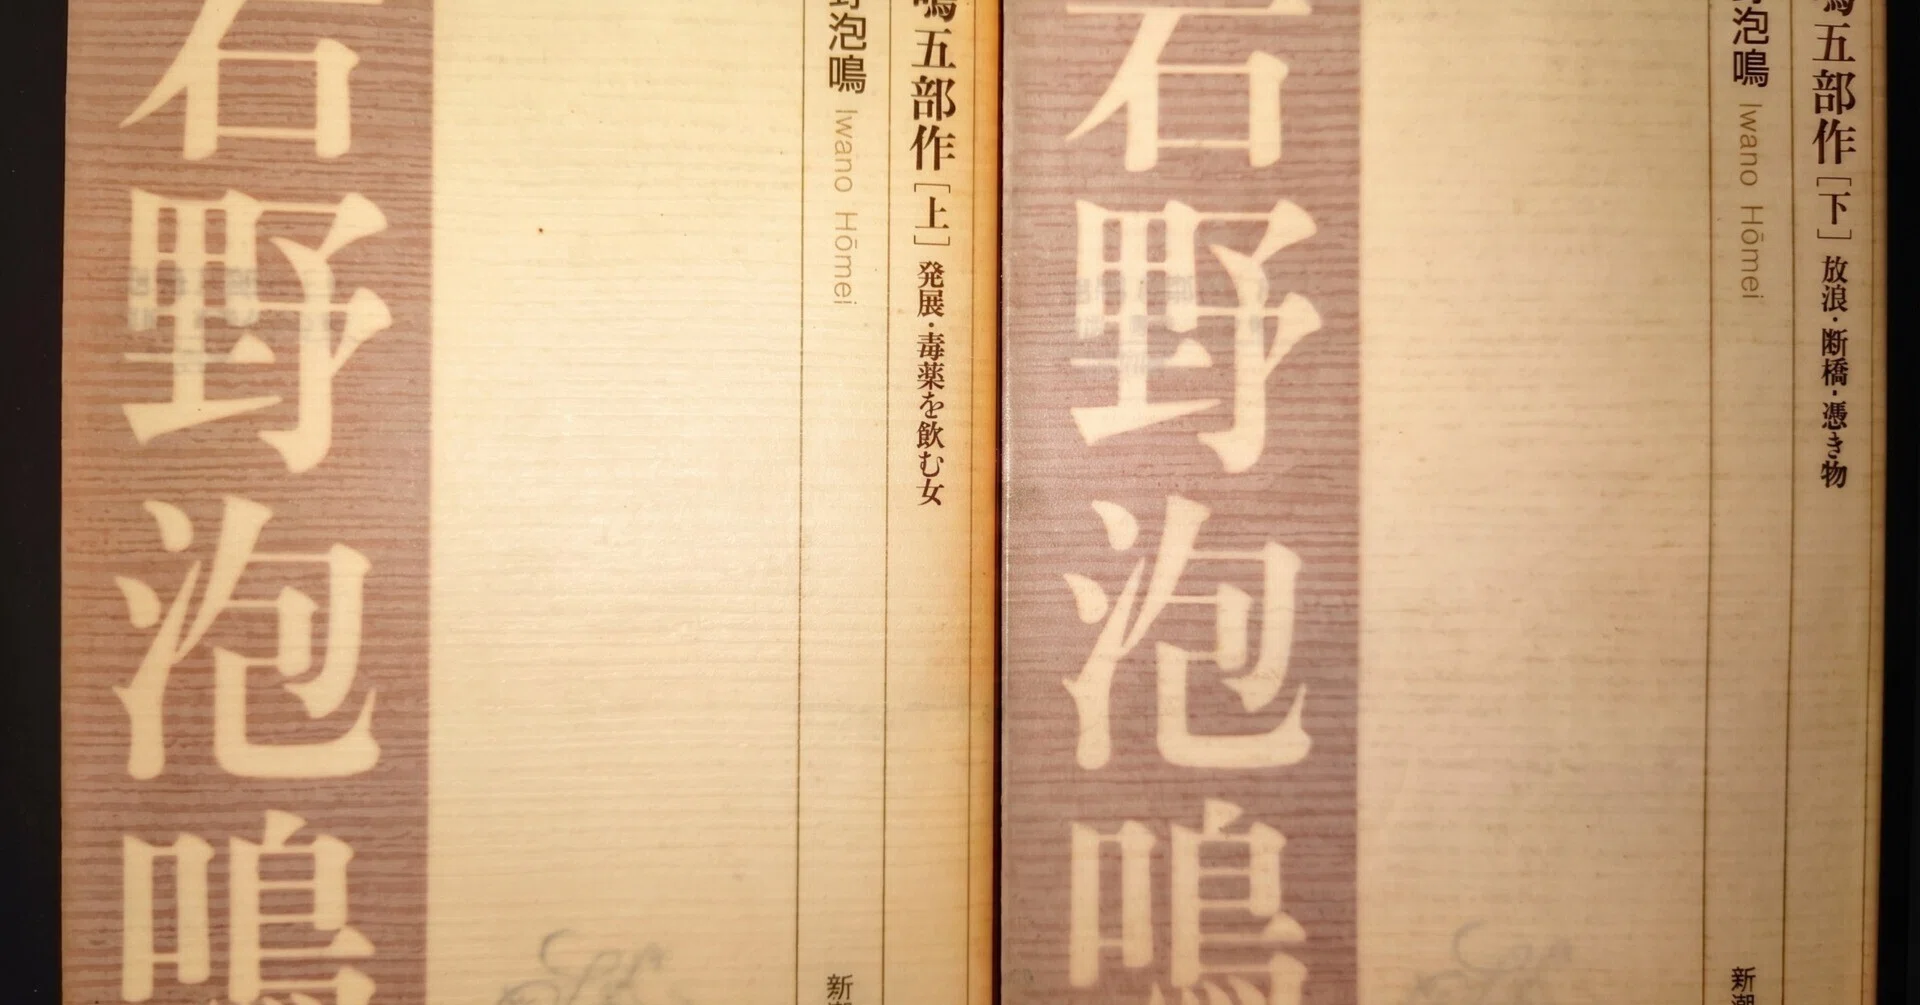 鳴五部作［上］発展・毒薬を飲む女
野泡鳴 Iwano Hōmei
新潮
岩野泡鳴
鳴五部作［下］放浪・断橋・憑き物
野泡鳴 Iwano Hōmei
新潮
岩野泡鳴